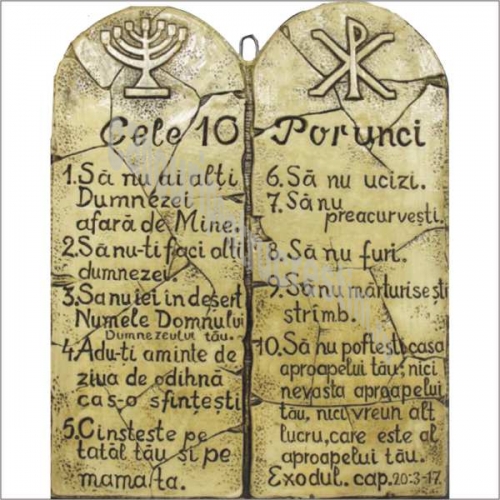 Cele 10 Porunci
1. Să nu ai alți
Dumnezei
afară de Mine.
2. Să nu-ti faci alti
dumnezei.
3. Sa nu iei in desert
Numele Domnului
Dumnezeului tău.
4. Adu-ti aminte de
ziua de odihnă
ca s-o sfințești
5. Cinsteste pe
tatăl tău și pe
mama ta.
6. Să nu ucizi.
7. Să nu
preacurvești.
8. Să nu furi.
9. Să nu mărturisesti
strimb.
10. Să nu poftesti casa
aproapelui tău; nici
nevasta aproapelui
tău, nici vreun alt
lucru, care este al
aproapelui tău.
Exodul. cap. 20:3-17.